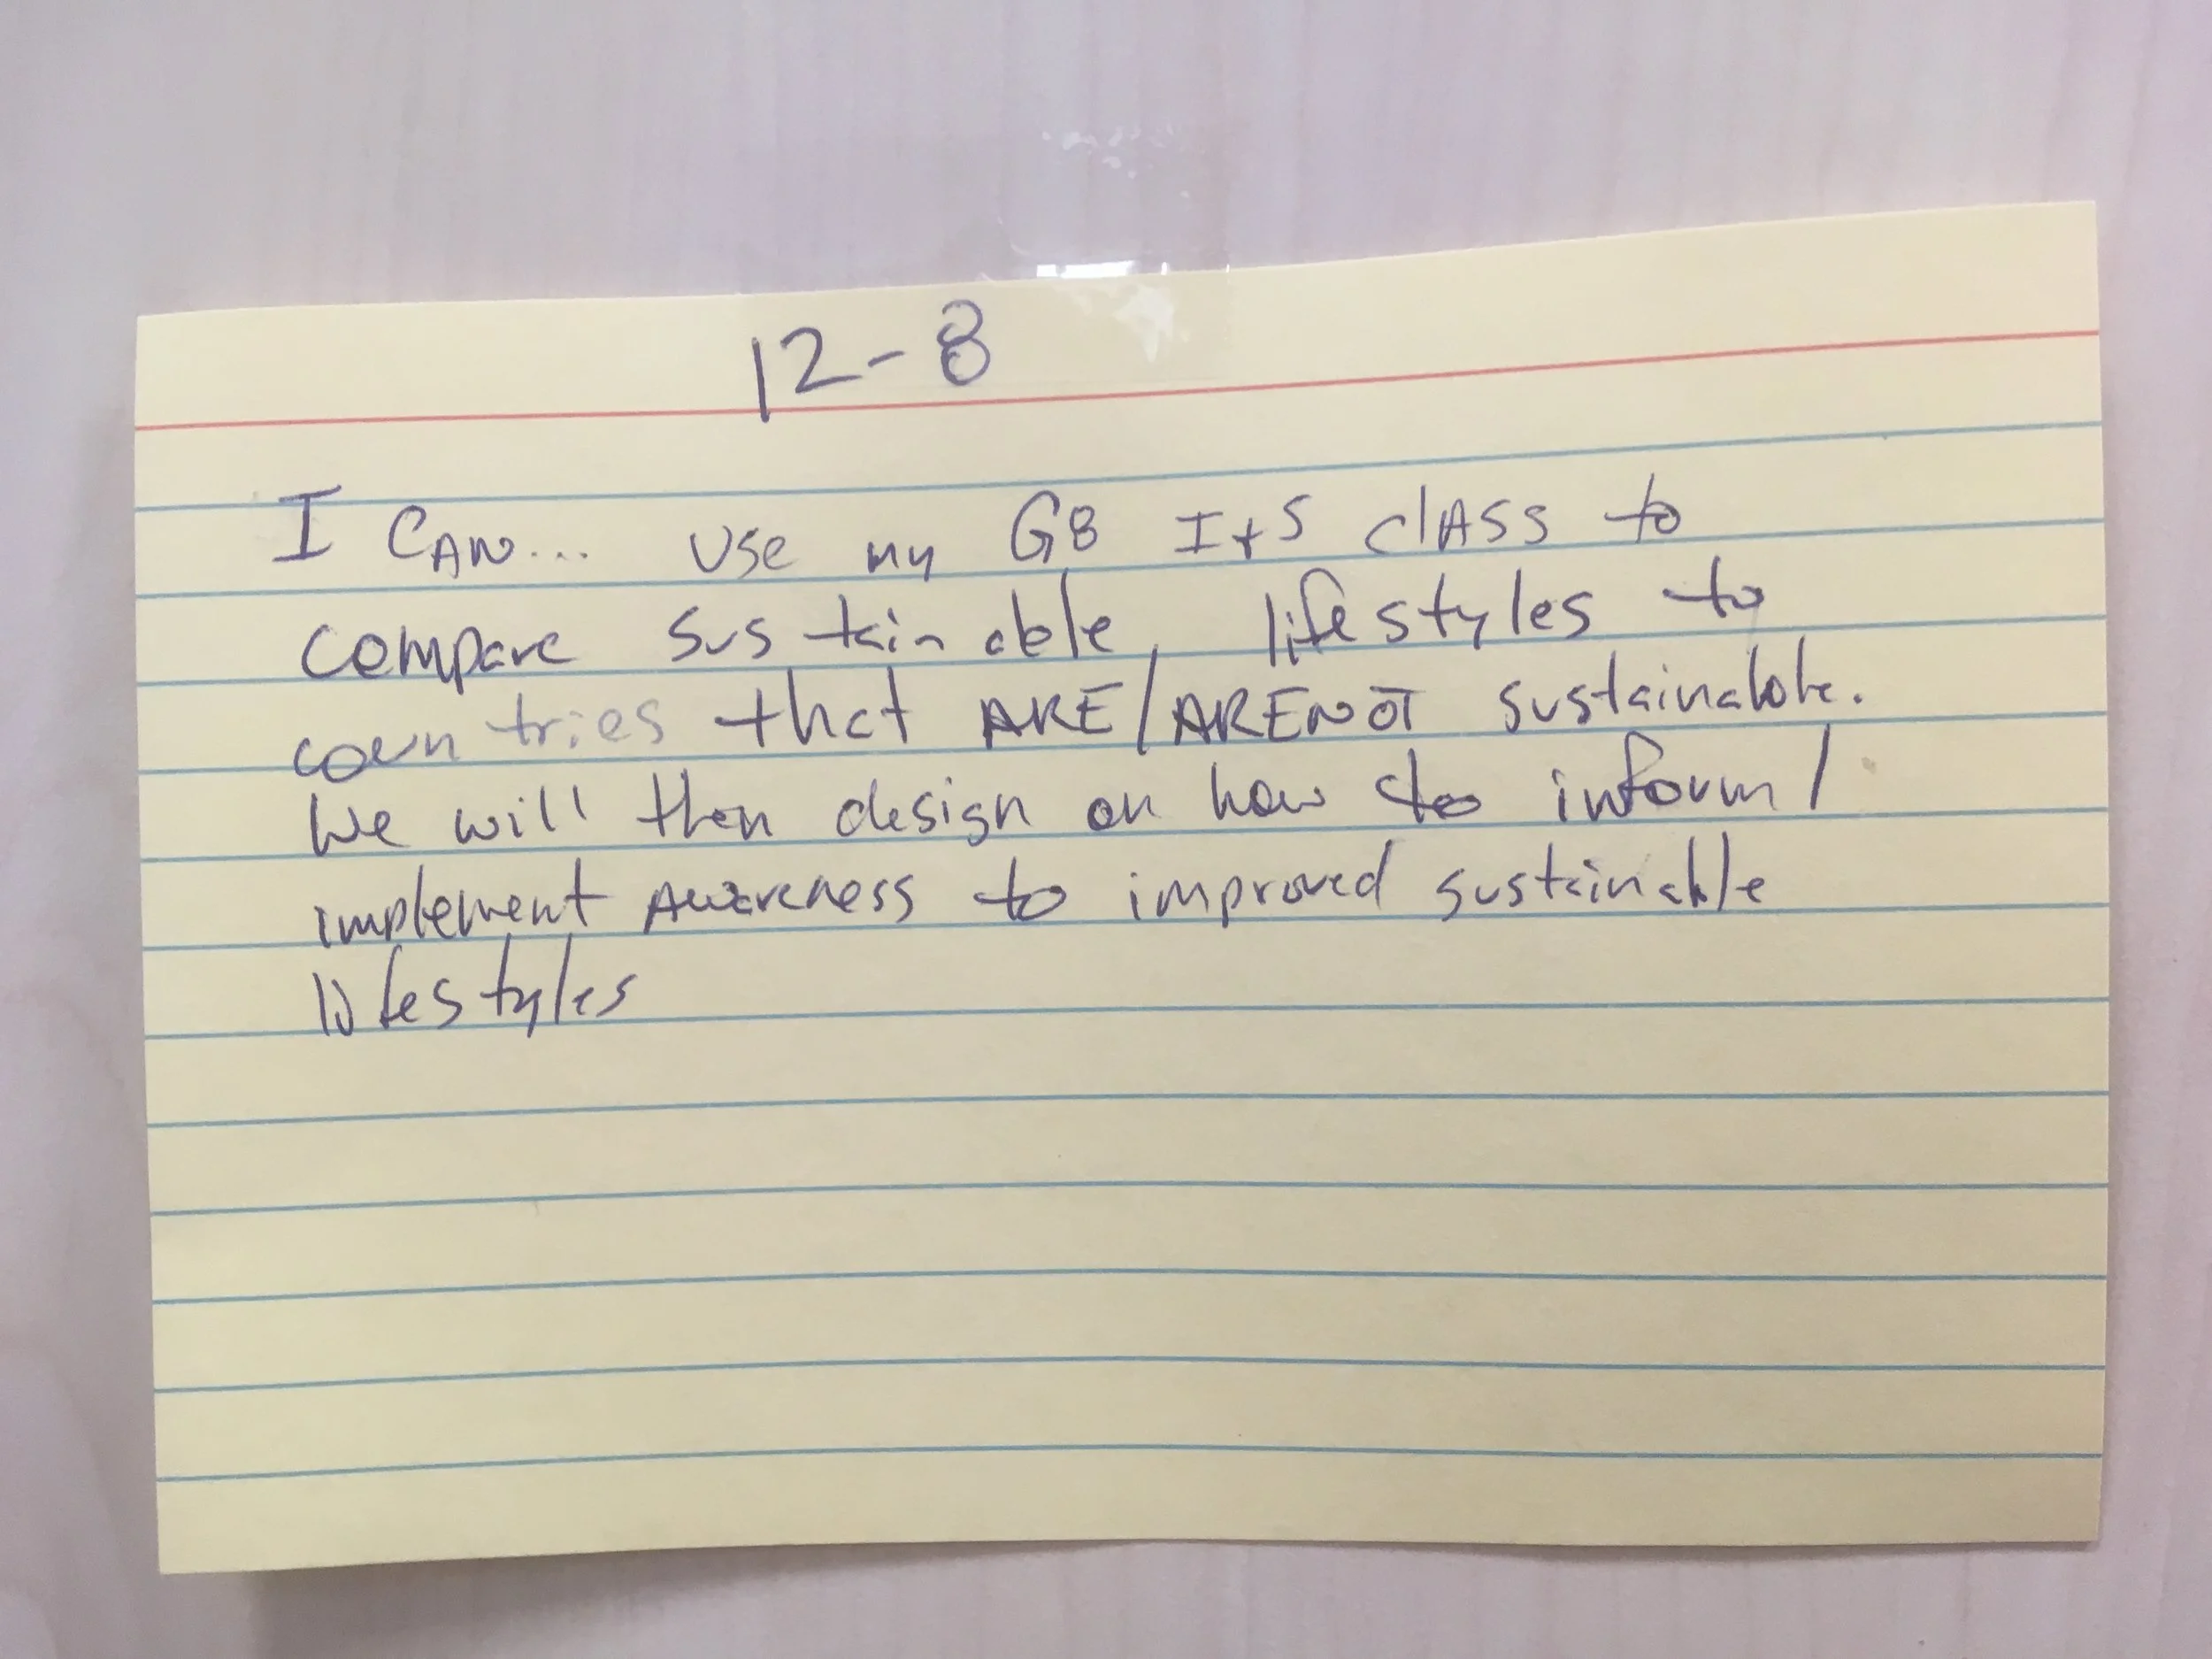 12-8
I CAN... use my G8 I+S class to
compare sustainable lifestyles to
countries that ARE/ARE NOT sustainable.
We will then design on how to inform/
implement awareness to improved sustainable
lifestyles